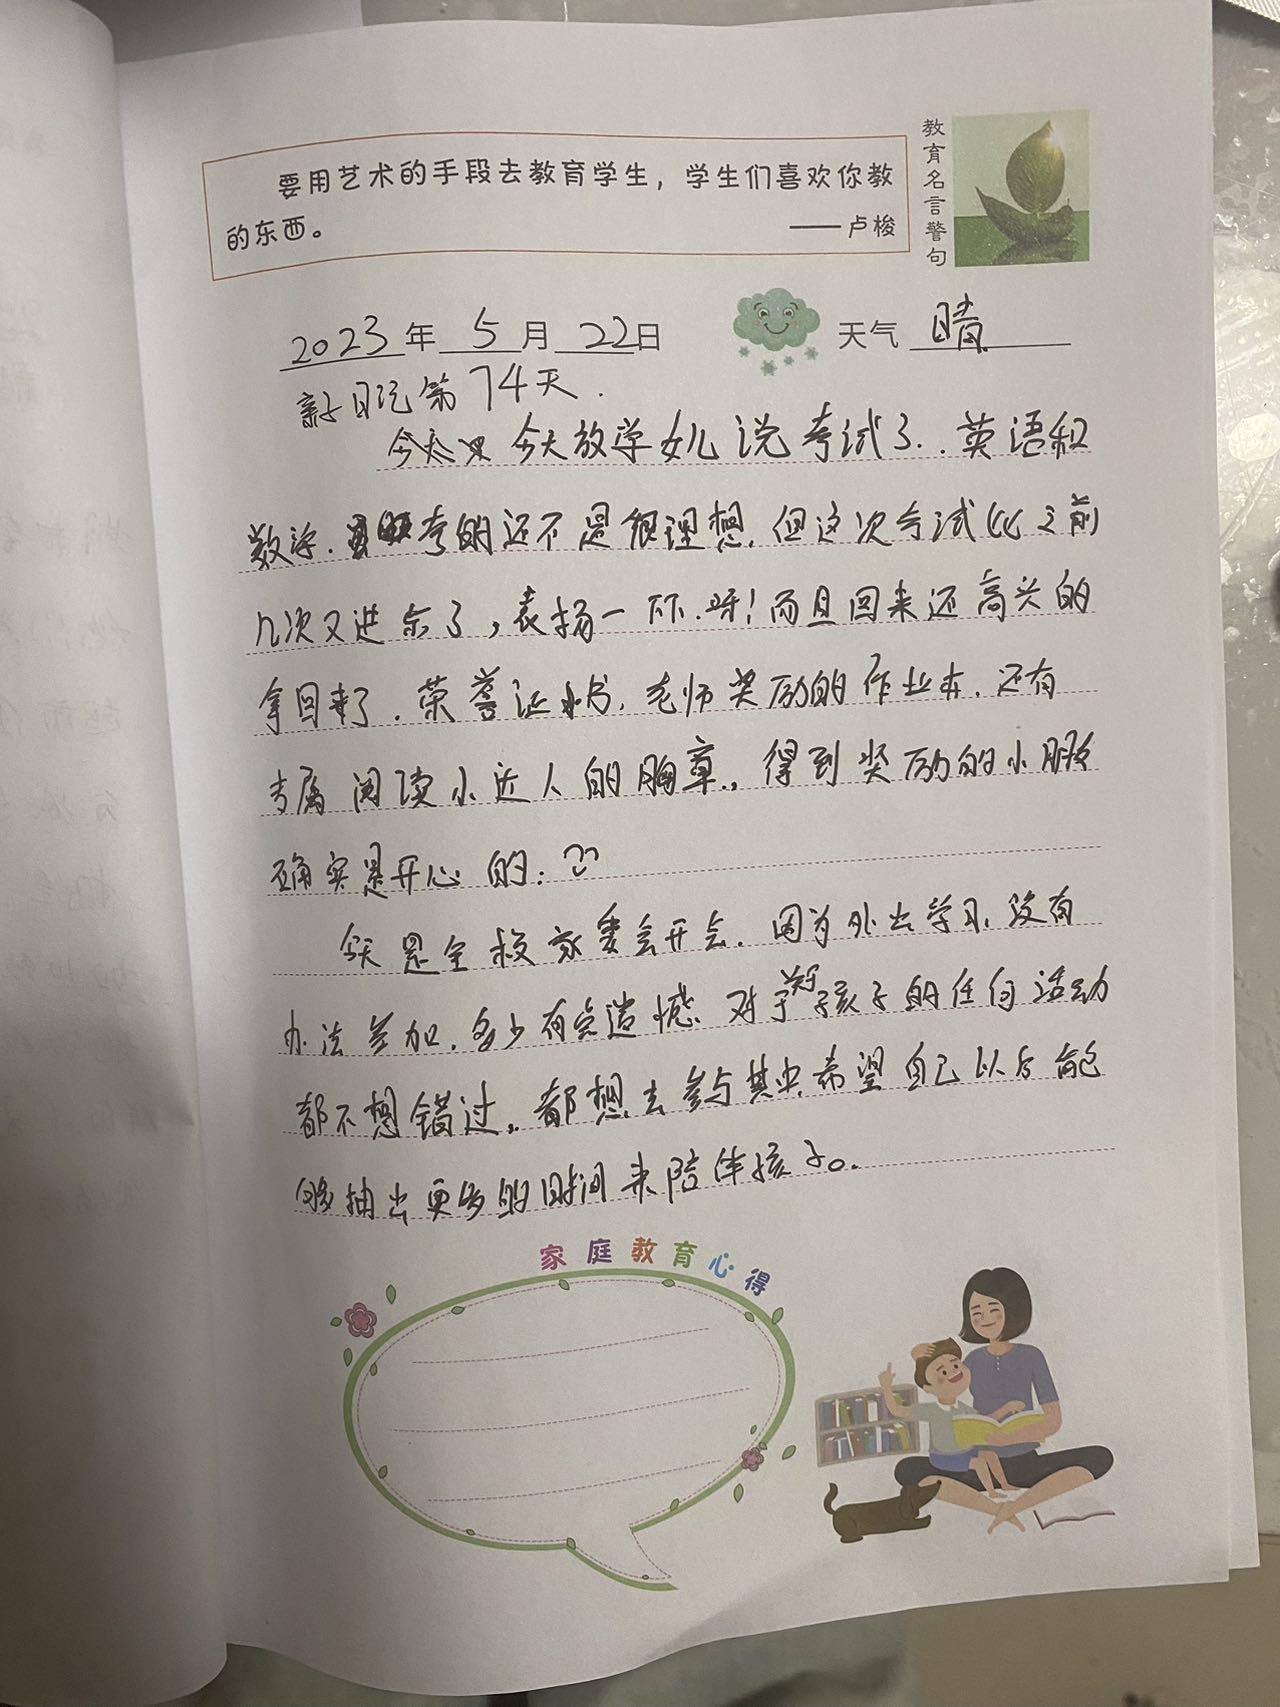 要用艺术的手段去教育学生，学生们喜欢你教
的东西。
——卢梭
教育名言警句
2023年 5月 22日
天气 晴
亲子日记第74天.
今天放学女儿说考试了..英语和
数学.考的还不是很理想,但这次考试比之前
几次又进步了,表扬一下.呀!而且回来还高兴的
拿回来了.荣誉证书,老师奖励的作业本.还有
专属阅读小达人的胸章.,得到奖励的小朋友
确实是开心的:
今天是全校家委会开会.因为外出学习,没有
办法参加.多少有点遗憾.对于关于孩子的任何活动
都不想错过.都想去参与其中.希望自己以后能
够抽出更多的时间来陪伴孩子。
家庭教育心得